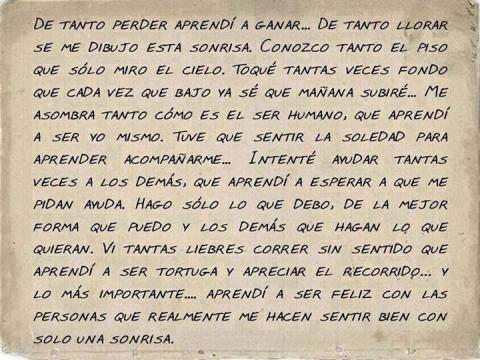 De tanto perder aprendí a ganar... De tanto llorar
se me dibujo esta sonrisa. Conozco tanto el piso
que sólo miro el cielo. Toqué tantas veces fondo
que cada vez que bajo ya sé que mañana subiré... Me
asombra tanto cómo es el ser humano, que aprendí
a ser yo mismo. Tuve que sentir la soledad para
aprender acompañarme... Intenté ayudar tantas
veces a los demás, que aprendí a esperar a que me
pidan ayuda. Hago sólo lo que debo, de la mejor
forma que puedo y los demás que hagan lo que
quieran. Vi tantas liebres correr sin sentido que
aprendí a ser tortuga y apreciar el recorrido... y
lo más importante.... aprendí a ser feliz con las
personas que realmente me hacen sentir bien con
solo una sonrisa.